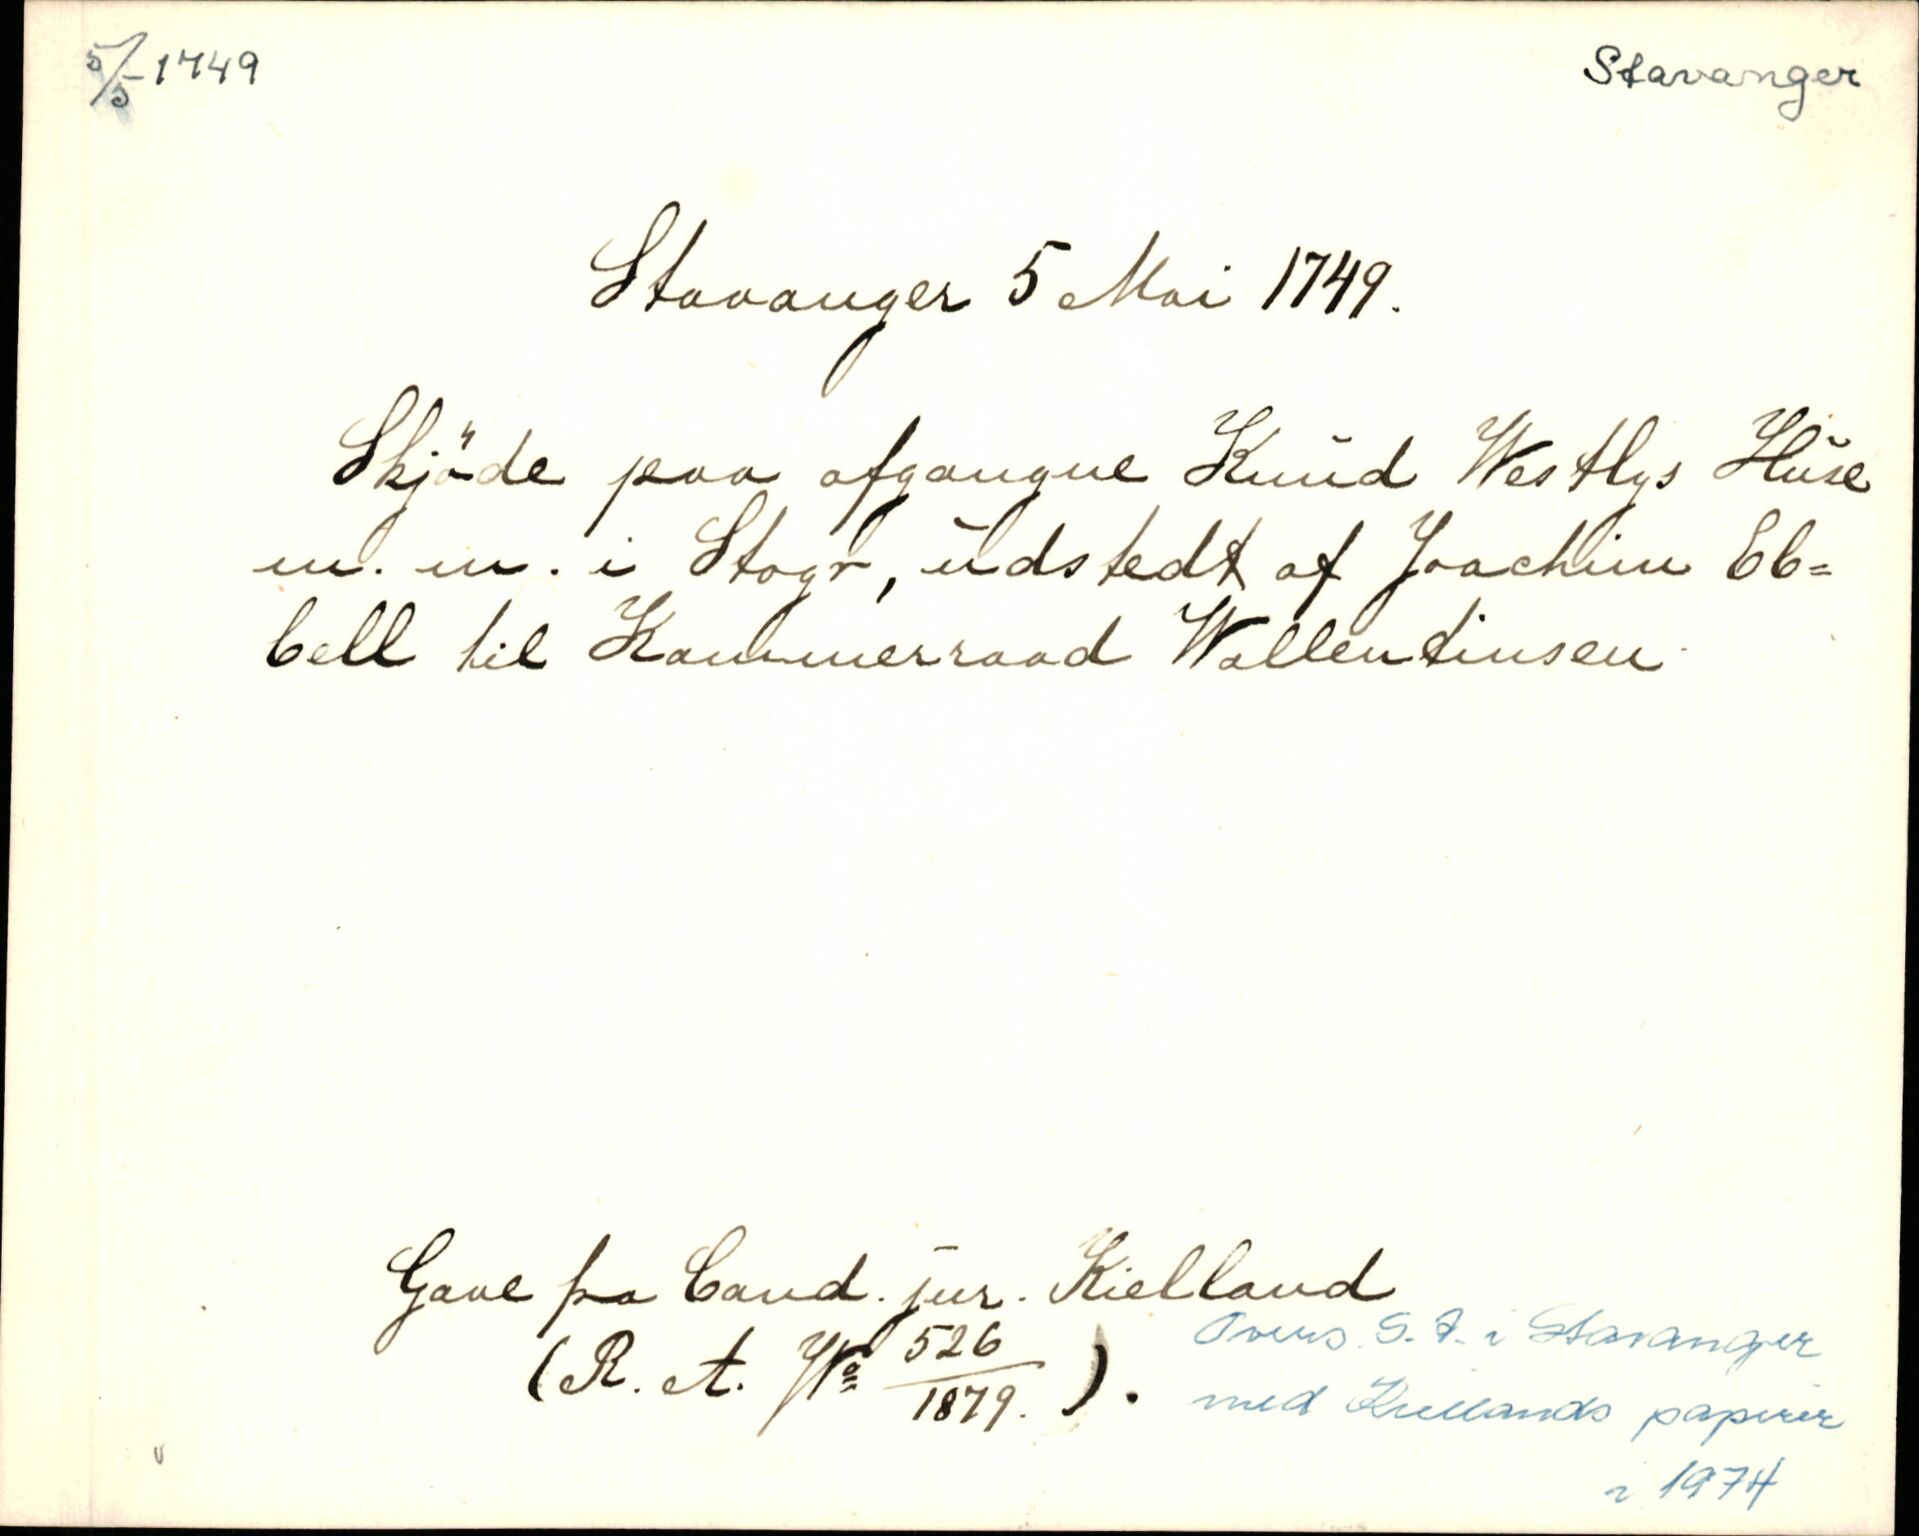 5/5-1749
Stavanger
Stavanger 5 Mai 1749.
Skjöde paa afgangne Knud Westlys Huse
m. m. i Stagr, udstedt af Joachim Eb=
bell til Kammerraad Wallentinsen.
Gave fra Cand. jur. Kielland
(R. A. No 526/1879.).
Overs. S.A. i Stavanger
med Kiellands papirer
i 1974